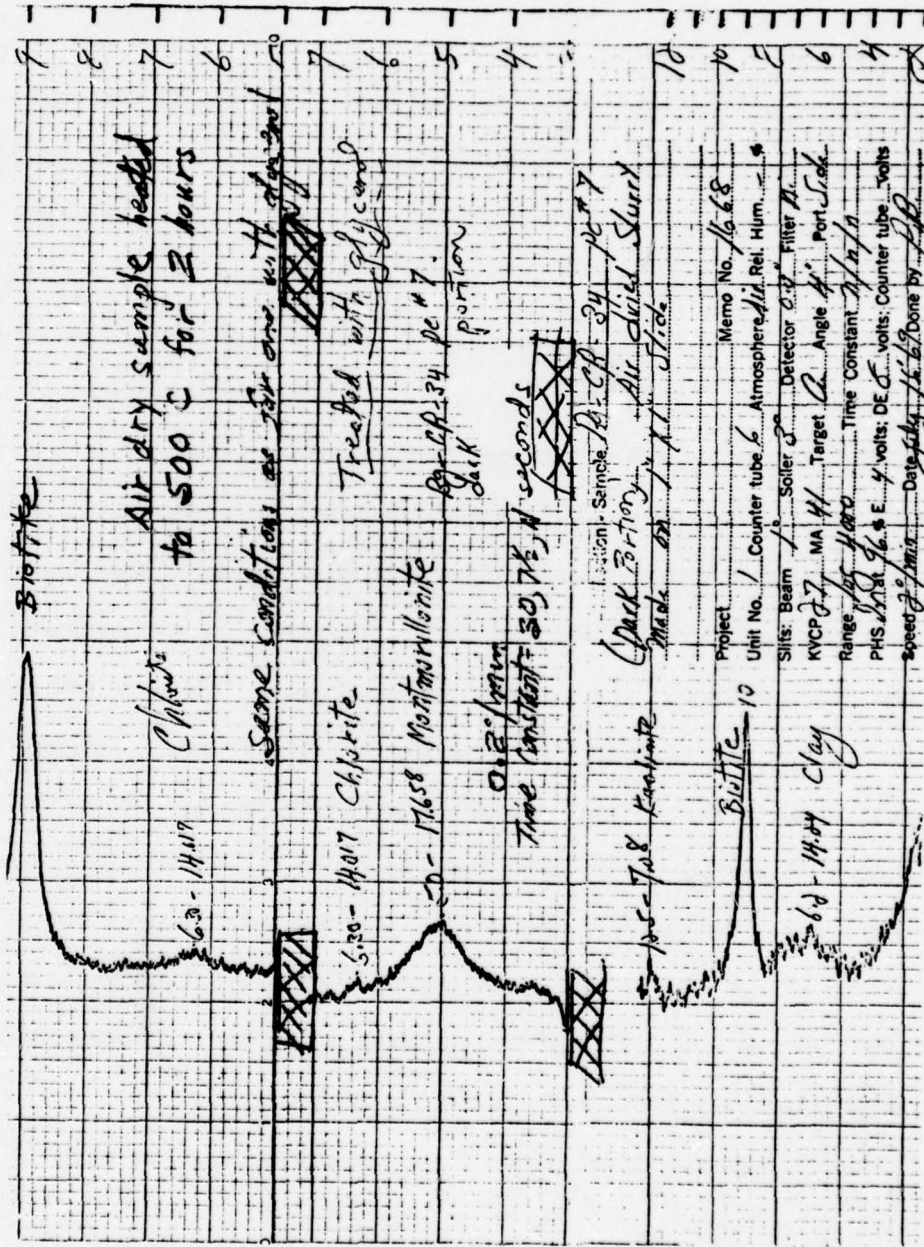 9
8
7
6
Biotite
Air dry sample heated
to 500 C for 2 hours
Chlorite
6.30 - 14.017
Same conditions as for one with glycerol
7
6
5
4
Treated with glycerol
6.30 - 14.017 Chlorite
5.0 - 17.658 Montmorillonite
CR-34 pc #7
dark portion
0.2°/min
Time Constant = 30, 7½, N seconds
Sample CR-34 pc #7
Dark Portion Air dried Slurry
made on Slide
12.5 - 7.08 Kaolinite
12
10
6
4
Biotite 10
6.2 - 14.24 Clay
Project Memo No. 1668
Unit No. 1 Counter tube 6 Atmosphere Air Rel. Hum. -
Slits: Beam 1° Soller Detector Filter
KVCP 27 MA 41 Target Angle 4° Port Side
Range 4000 Time Constant
PHS at 96% E 4 volts; DE volts; Counter tube volts
Speed 2°/min Date Done by
0
1
2
3
4